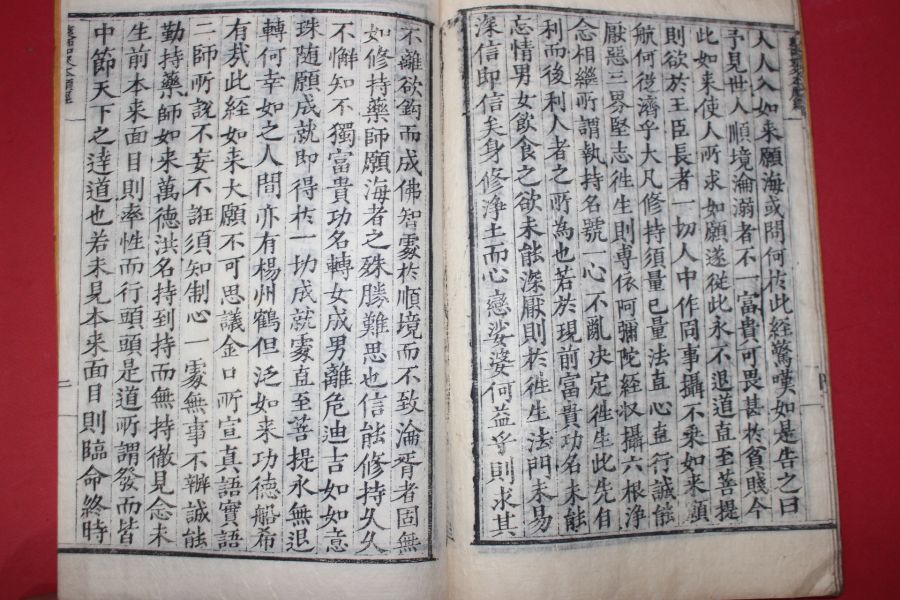 人人入如来願海或問何扵此經驚嘆如是告之曰
予見世人順境淪溺者不一富貴可畏甚扵貧賤今
此如来使人所求如願遂從此永不退道直至菩提
則欲於王臣長者一切人中作同事攝不乗如来願
航何從濟乎大凡修持須量已量法直心直行誠能
厭惡三界堅志徃生則専依阿彌陀経収攝六根浄
念相繼所謂執持名號一心不亂决定徃生此先自
利而後利人者之所為也若於現前富貴功名未能
忘情男女飲食之欲未能深厭則扵徃生法門未易
深信即信矣身修淨土而心戀娑婆何益乎則求其
不離欲鈎而成佛智處扵順境而不致淪胥者固無
如修持藥師願海者之殊勝難思也信能修持久久
不懈知不獨富貴功名轉女成男離危迪吉如如意
珠随願成就即得扵一切成就處直至菩提永無退
轉何幸如之人間亦有楊州鶴但泛如来功德船希
有㢤此経如来大願不可思議金口所宣真語實語
二師所説不妄不誑須知制心一處無事不辦誠能
勤持藥師如来萬德洪名持到持而無持徹見念未
生前本来面目則率性而行頭頭是道所謂發而皆
中節天下之達道也若未見本来面目則臨命終時
二